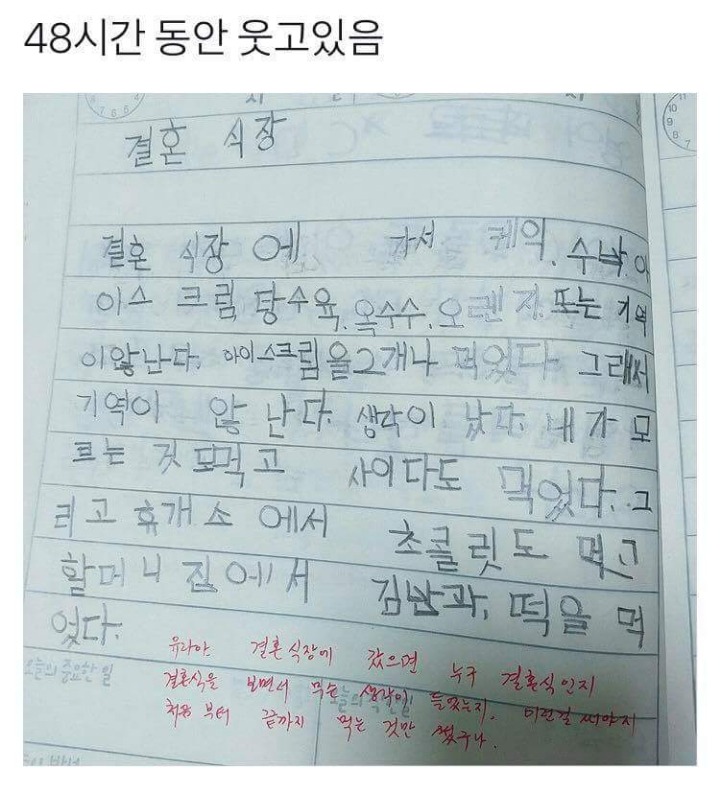 48시간 동안 웃고있음
결혼 식장
결혼 식장에 가서 케익, 수박, 아
이스 크림 탕수육, 옥수수, 오렌지, 또는 기억
이않난다. 아이스크림을2개나 먹었다. 그래서
기억이 않난다. 생각이 났다. 내가 모
르는 것도먹고 사이다도 먹었다. 그
리고 휴개소에서 초콜릿도 먹고
할머니 집에서 김반과, 떡을 먹
었다.
유라야 결혼식장에 갔으면 누구 결혼식인지
결혼식을 보면서 무슨 생각이 들었는지. 이런걸 써야지
처음부터 끝까지 먹는 것만 썼구나.
오늘의 중요한 일